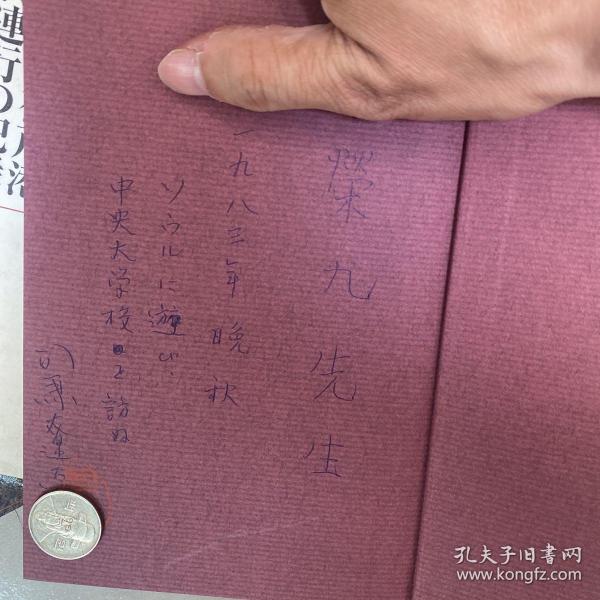 榮九先生
一九八三年晩秋
ソウルに遊び
中央大学校を訪ぬ
連行の記
孔夫子旧书网
www.kongfz.com